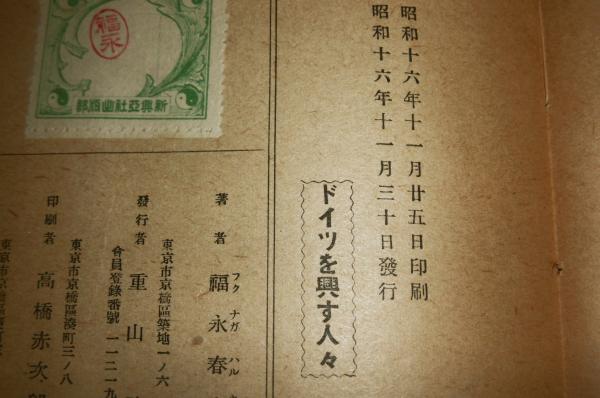 昭和十六年十一月廿五日印刷
昭和十六年十一月三十日發行
ドイツを興す人々
福永
新興亞社出版部
著者 福永春
フクナガハル
東京市京橋區築地一ノ六
發行者 重山
會員登錄番號 一一二一九
東京市京橋區湊町三ノ八
印刷者 高橋赤次
東京市京橋區